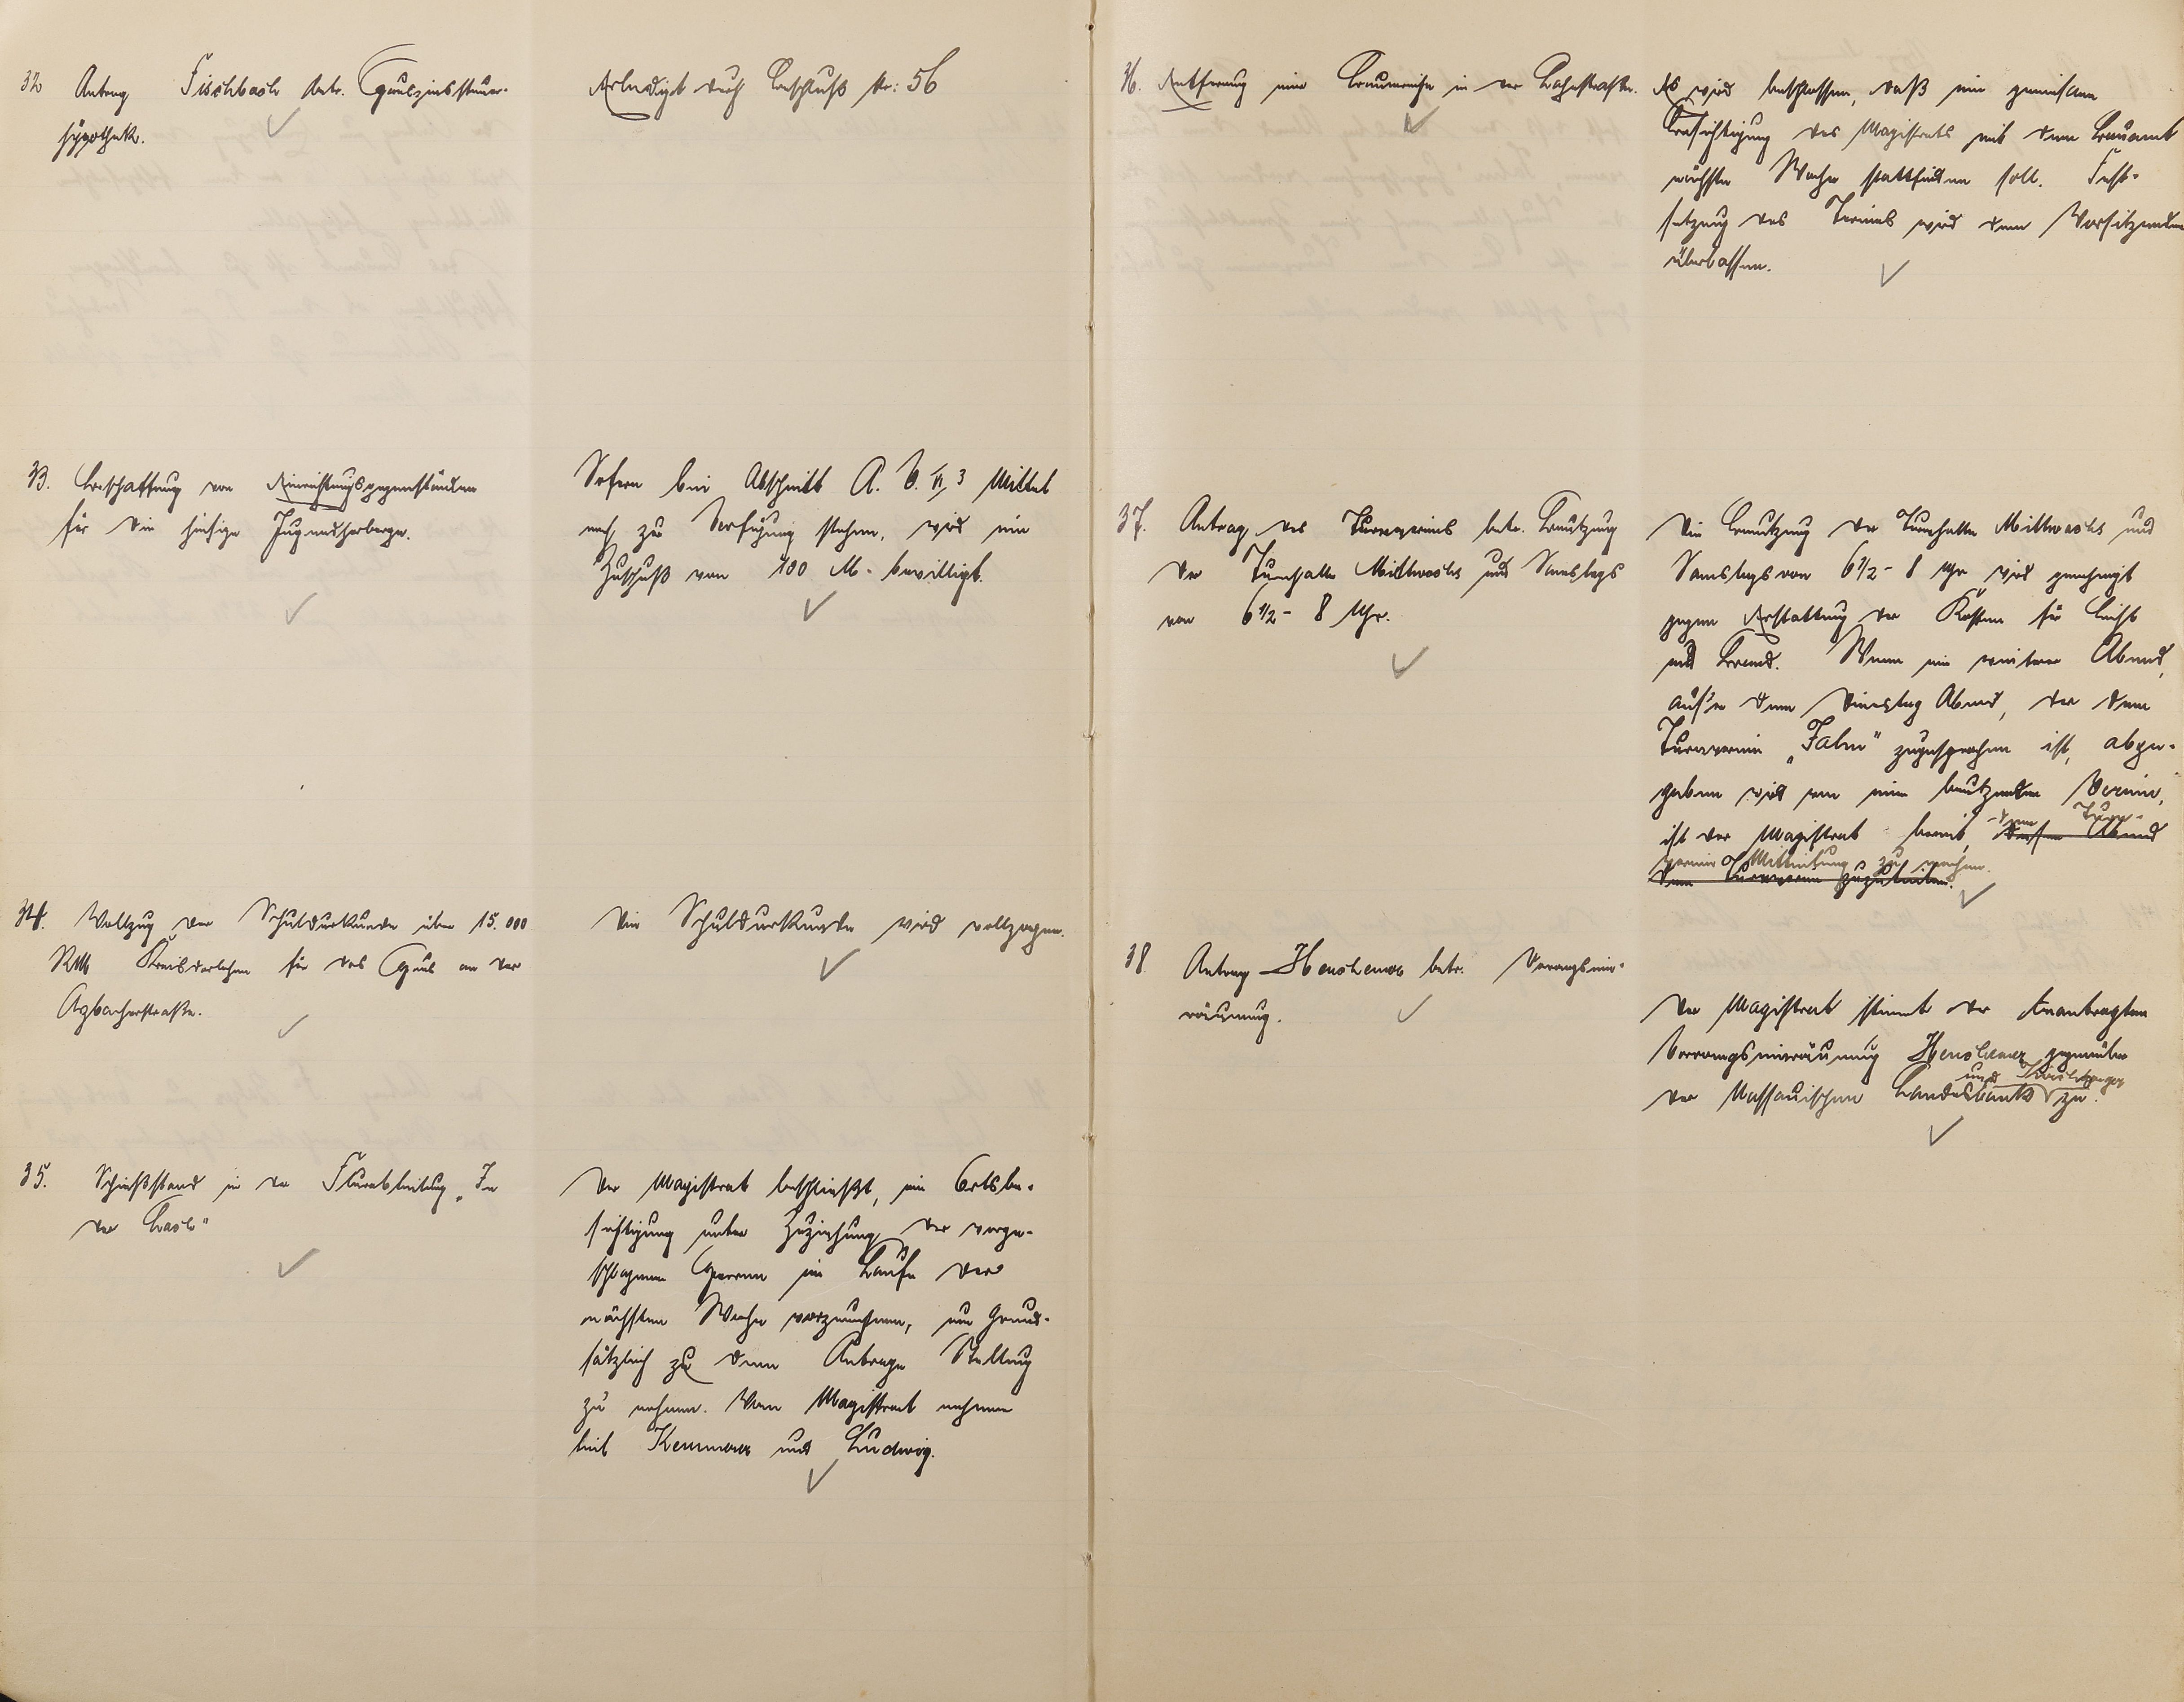 32 Antrag Fischbach betr. Hauszinssteuer-
hypothek.
Erledigt durch Beschluß Nr: 56
33. Beschaffung von Einrichtungsgegenständen
für die hiesige Jugendherberge.
Sofern bei Abschnitt A. V. II, 3 Mittel
noch zur Verfügung stehen, wird ein
Zuschuß von 100 M. bewilligt.
34. Vollzug der Schuldurkunde über 15.000
RM Kreisdarlehen für das Haus an der
Arzbacherstraße.
Die Schuldurkunde wird vollzogen.
35. Schießstand in der Flurabteilung „In
der
Der Magistrat beschließt, eine Ortsbe-
sichtigung unter Zuziehung der vorge-
schlagenen Herren im Laufe der
nächsten Woche vorzunehmen, um grund-
sätzlich zu dem Antrage Stellung
zu nehmen. Vom Magistrat nehmen
teil Kemmerer und Ludwig.
36. Entfernung einer Baumreihe in der Bahnstraße.
Es wird beschlossen, daß eine gemeinsame
Besichtigung des Magistrats mit dem Bauamt
nächste Woche stattfinden soll. Fest-
setzung des Termins wird dem Vorsitzenden
überlassen.
37. Antrag des Turnvereins betr. Benutzung
der Turnhalle Mittwochs und Samstags
von 6 1/2 - 8 Uhr.
Die Benutzung der Turnhalle Mittwochs und
Samstags von 6 1/2 - 8 Uhr wird genehmigt
gegen Erstattung der Kosten für Licht
und Brand. Wenn ein weiterer Abend,
außer dem Dienstag Abend, der dem
Turnverein „Jahn" zugesprochen ist, abge-
geben wird von einem benutzenden Verein,
ist der Magistrat bereit, diesen Abend
dem Turn-
verein Mitteilung zu machen.
dem Turnverein zuzuteilen.
38. Antrag betr. Vorrangsein-
räumung.
Der Magistrat stimmt der beantragten
Vorrangseinräumung gegenüber
und
der Nassauischen Landesbank zu.